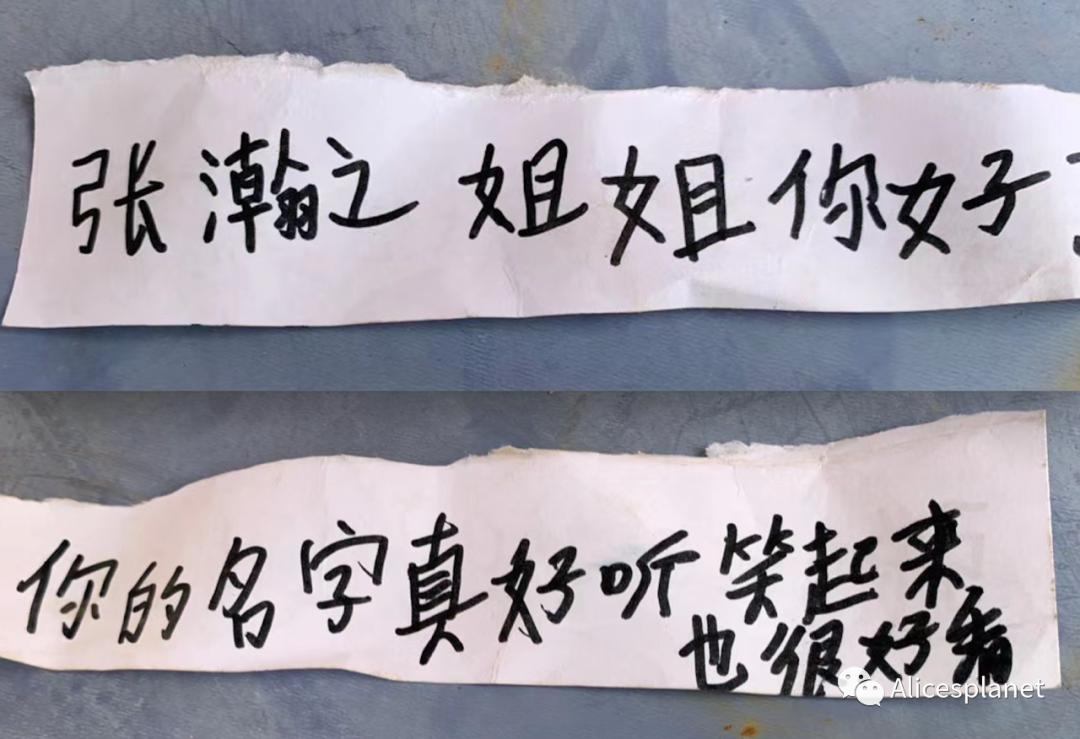 张瀚之 姐姐你好
你的名字真好听笑起来
也很好看
Alicesplanet